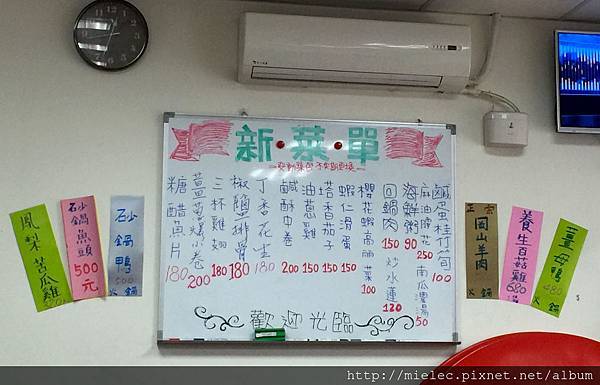 新·菜·單
鹹蛋桂竹旬
100
麻油腰花
250
南瓜濃湯
50
海鮮粥
90
回鍋肉
150
炒水蓮
120
櫻花蝦高麗菜
100
蝦仁滑蛋
150
塔香茄子
150
油蔥雞
150
鹹酥中卷
200
丁香花生
180
椒鹽排骨
180
三杯雞翅
180
薑蔥爆小卷
200
糖醋魚片
180
歡迎光臨
鳳梨苦瓜雞
砂鍋魚頭
500元
砂鍋鴨
500
火鍋
正宗
岡山羊肉
火鍋
養生百菇雞
680
火鍋
薑母鴨
480
火鍋
http://mielec.pixnet.net/album